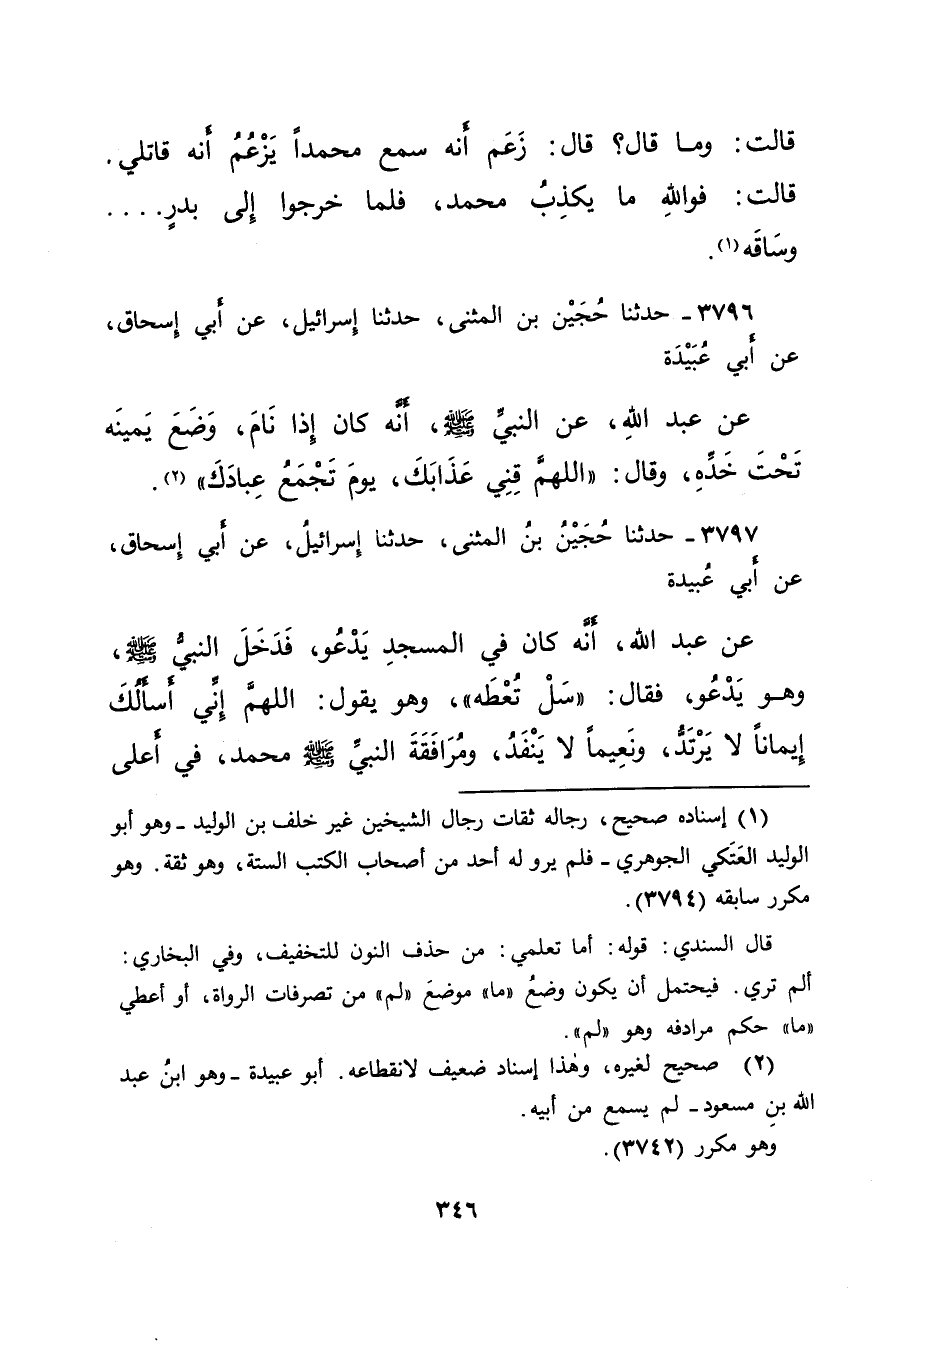 قالت: وما قال؟ قال: زَعَم أَنه سمع محمداً يَزْعُمُ أَنه قاتلي.
قالت: فواللهِ ما يكذِبُ محمد، فلما خرجوا إِلى بدرٍ....
وسَاقَه(١).
٣٧٩٦ـ حدثنا حُجَيْن بن المثنى، حدثنا إِسرائيل، عن أَبي إِسحاق،
عن أَبي عُبَيْدَة
عن عبد اللهِ، عن النبيِّ ﷺ، أَنَّه كان إِذا نَامَ، وَضَعَ يَمينَه
تَحْتَ خَدِّهِ، وقال: «اللهمَّ قِنِي عَذَابَكَ، يومَ تَجْمَعُ عِبادَكَ»(٢).
٣٧٩٧ـ حدثنا حُجَيْنُ بنُ المثنى، حدثنا إِسرائيلُ، عن أَبي إِسحاق،
عن أَبي عُبيدة
عن عبد الله، أَنَّه كان في المسجدِ يَدْعُو، فَدَخَلَ النبيُّ ﷺ،
وهو يَدْعُو، فقال: «سَلْ تُعْطَه»، وهو يقول: اللهمَّ إِنِّي أَسأَلُكَ
إِيماناً لا يَرْتَدُّ، ونَعِيماً لا يَنْفَدُ، ومُرَافَقَةَ النبيِّ ﷺ محمد، في أَعلى
(١) إسناده صحيح، رجاله ثقات رجال الشيخين غير خلف بن الوليد ـ وهو أبو
الوليد العَتَكي الجوهري ـ فلم يرو له أحد من أصحاب الكتب الستة، وهو ثقة. وهو
مكرر سابقه (٣٧٩٤).
قال السندي: قوله: أما تعلمي: من حذف النون للتخفيف، وفي البخاري:
ألم تري. فيحتمل أن يكون وضعُ «ما» موضعَ «لم» من تصرفات الرواة، أو أعطي
«ما» حكم مرادفه وهو «لم».
(٢) صحيح لغيره، وهٰذا إسناد ضعيف لانقطاعه. أبو عبيدة ـ وهو ابنُ عبد
الله بنِ مسعود ـ لم يسمع من أبيه.
وهو مكرر (٣٧٤٢).
٣٤٦